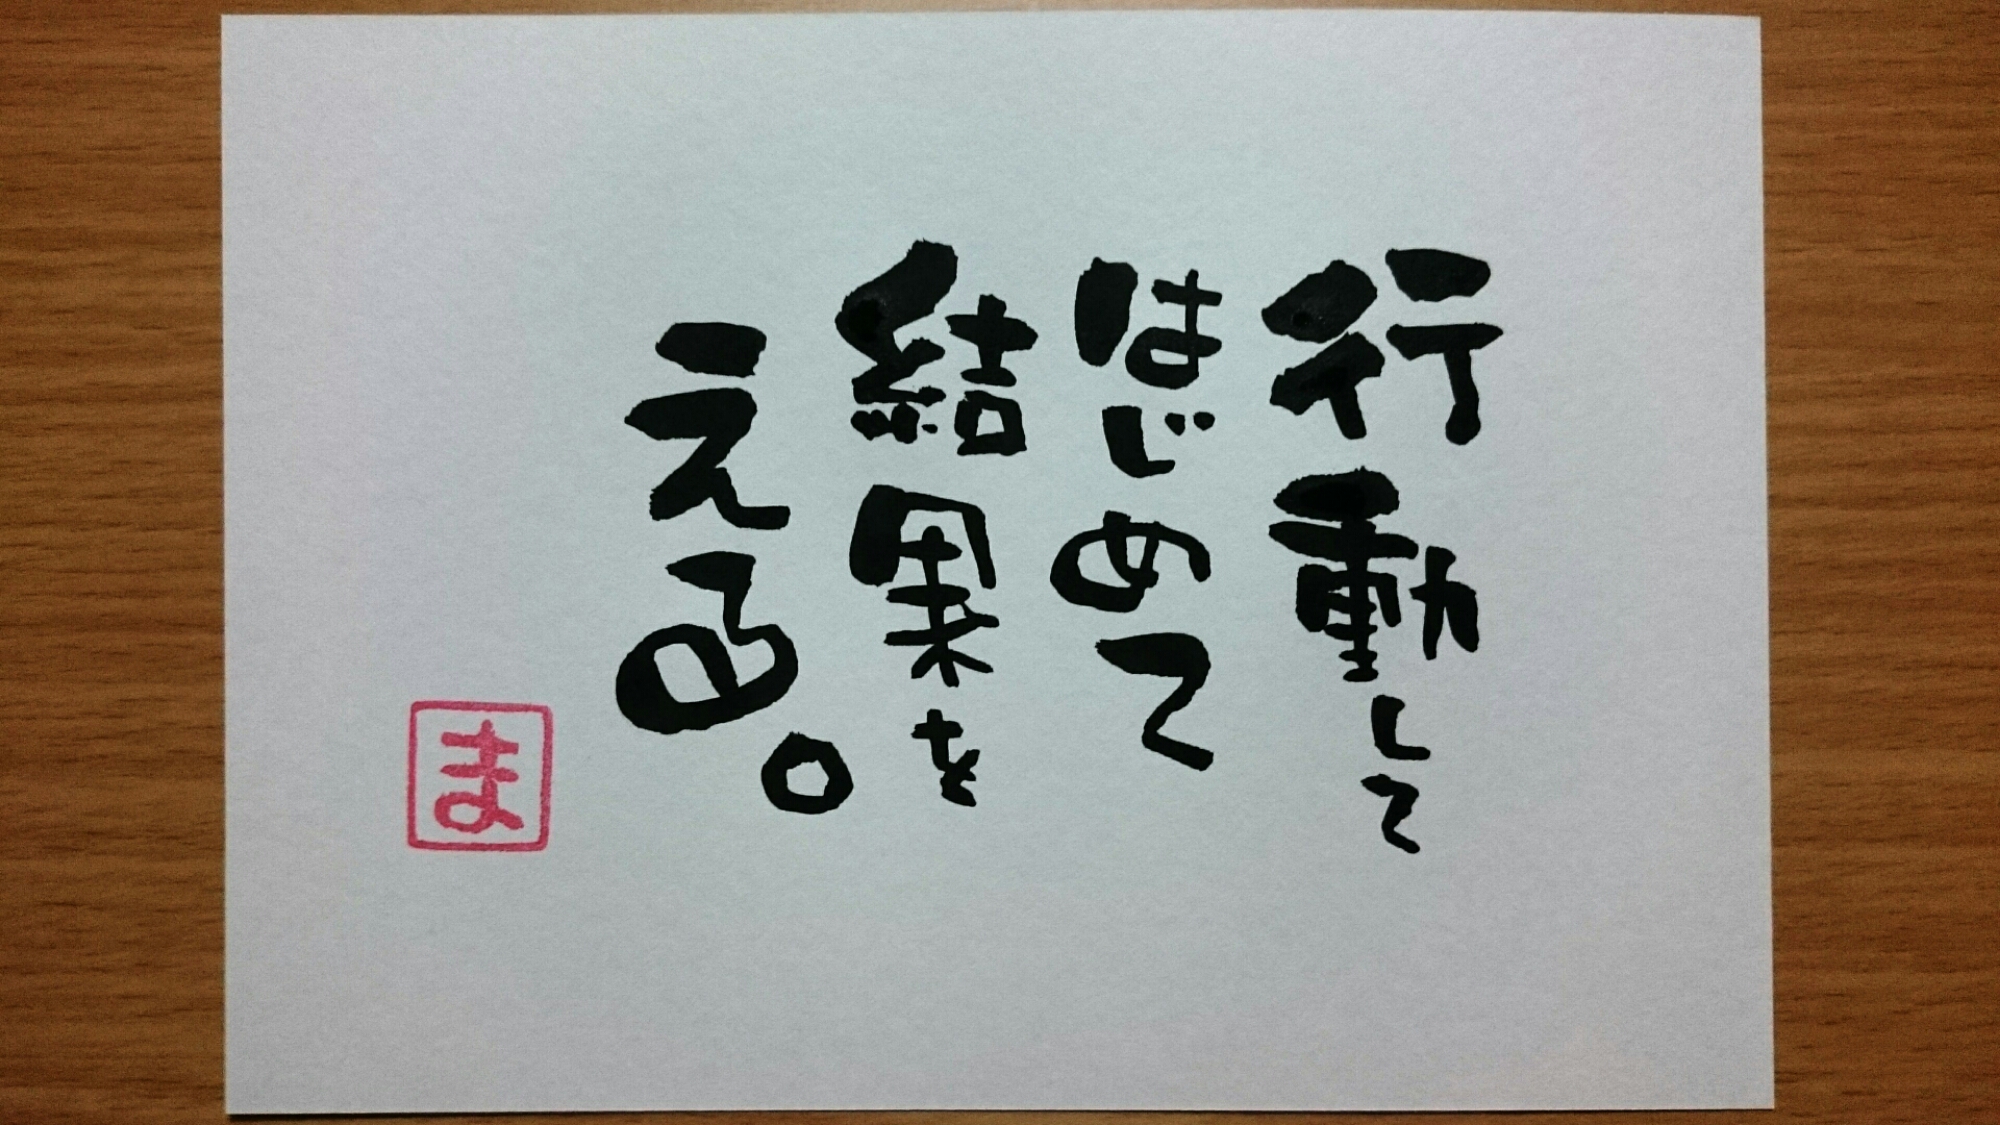 行動して
はじめて
結果を
える。
ま